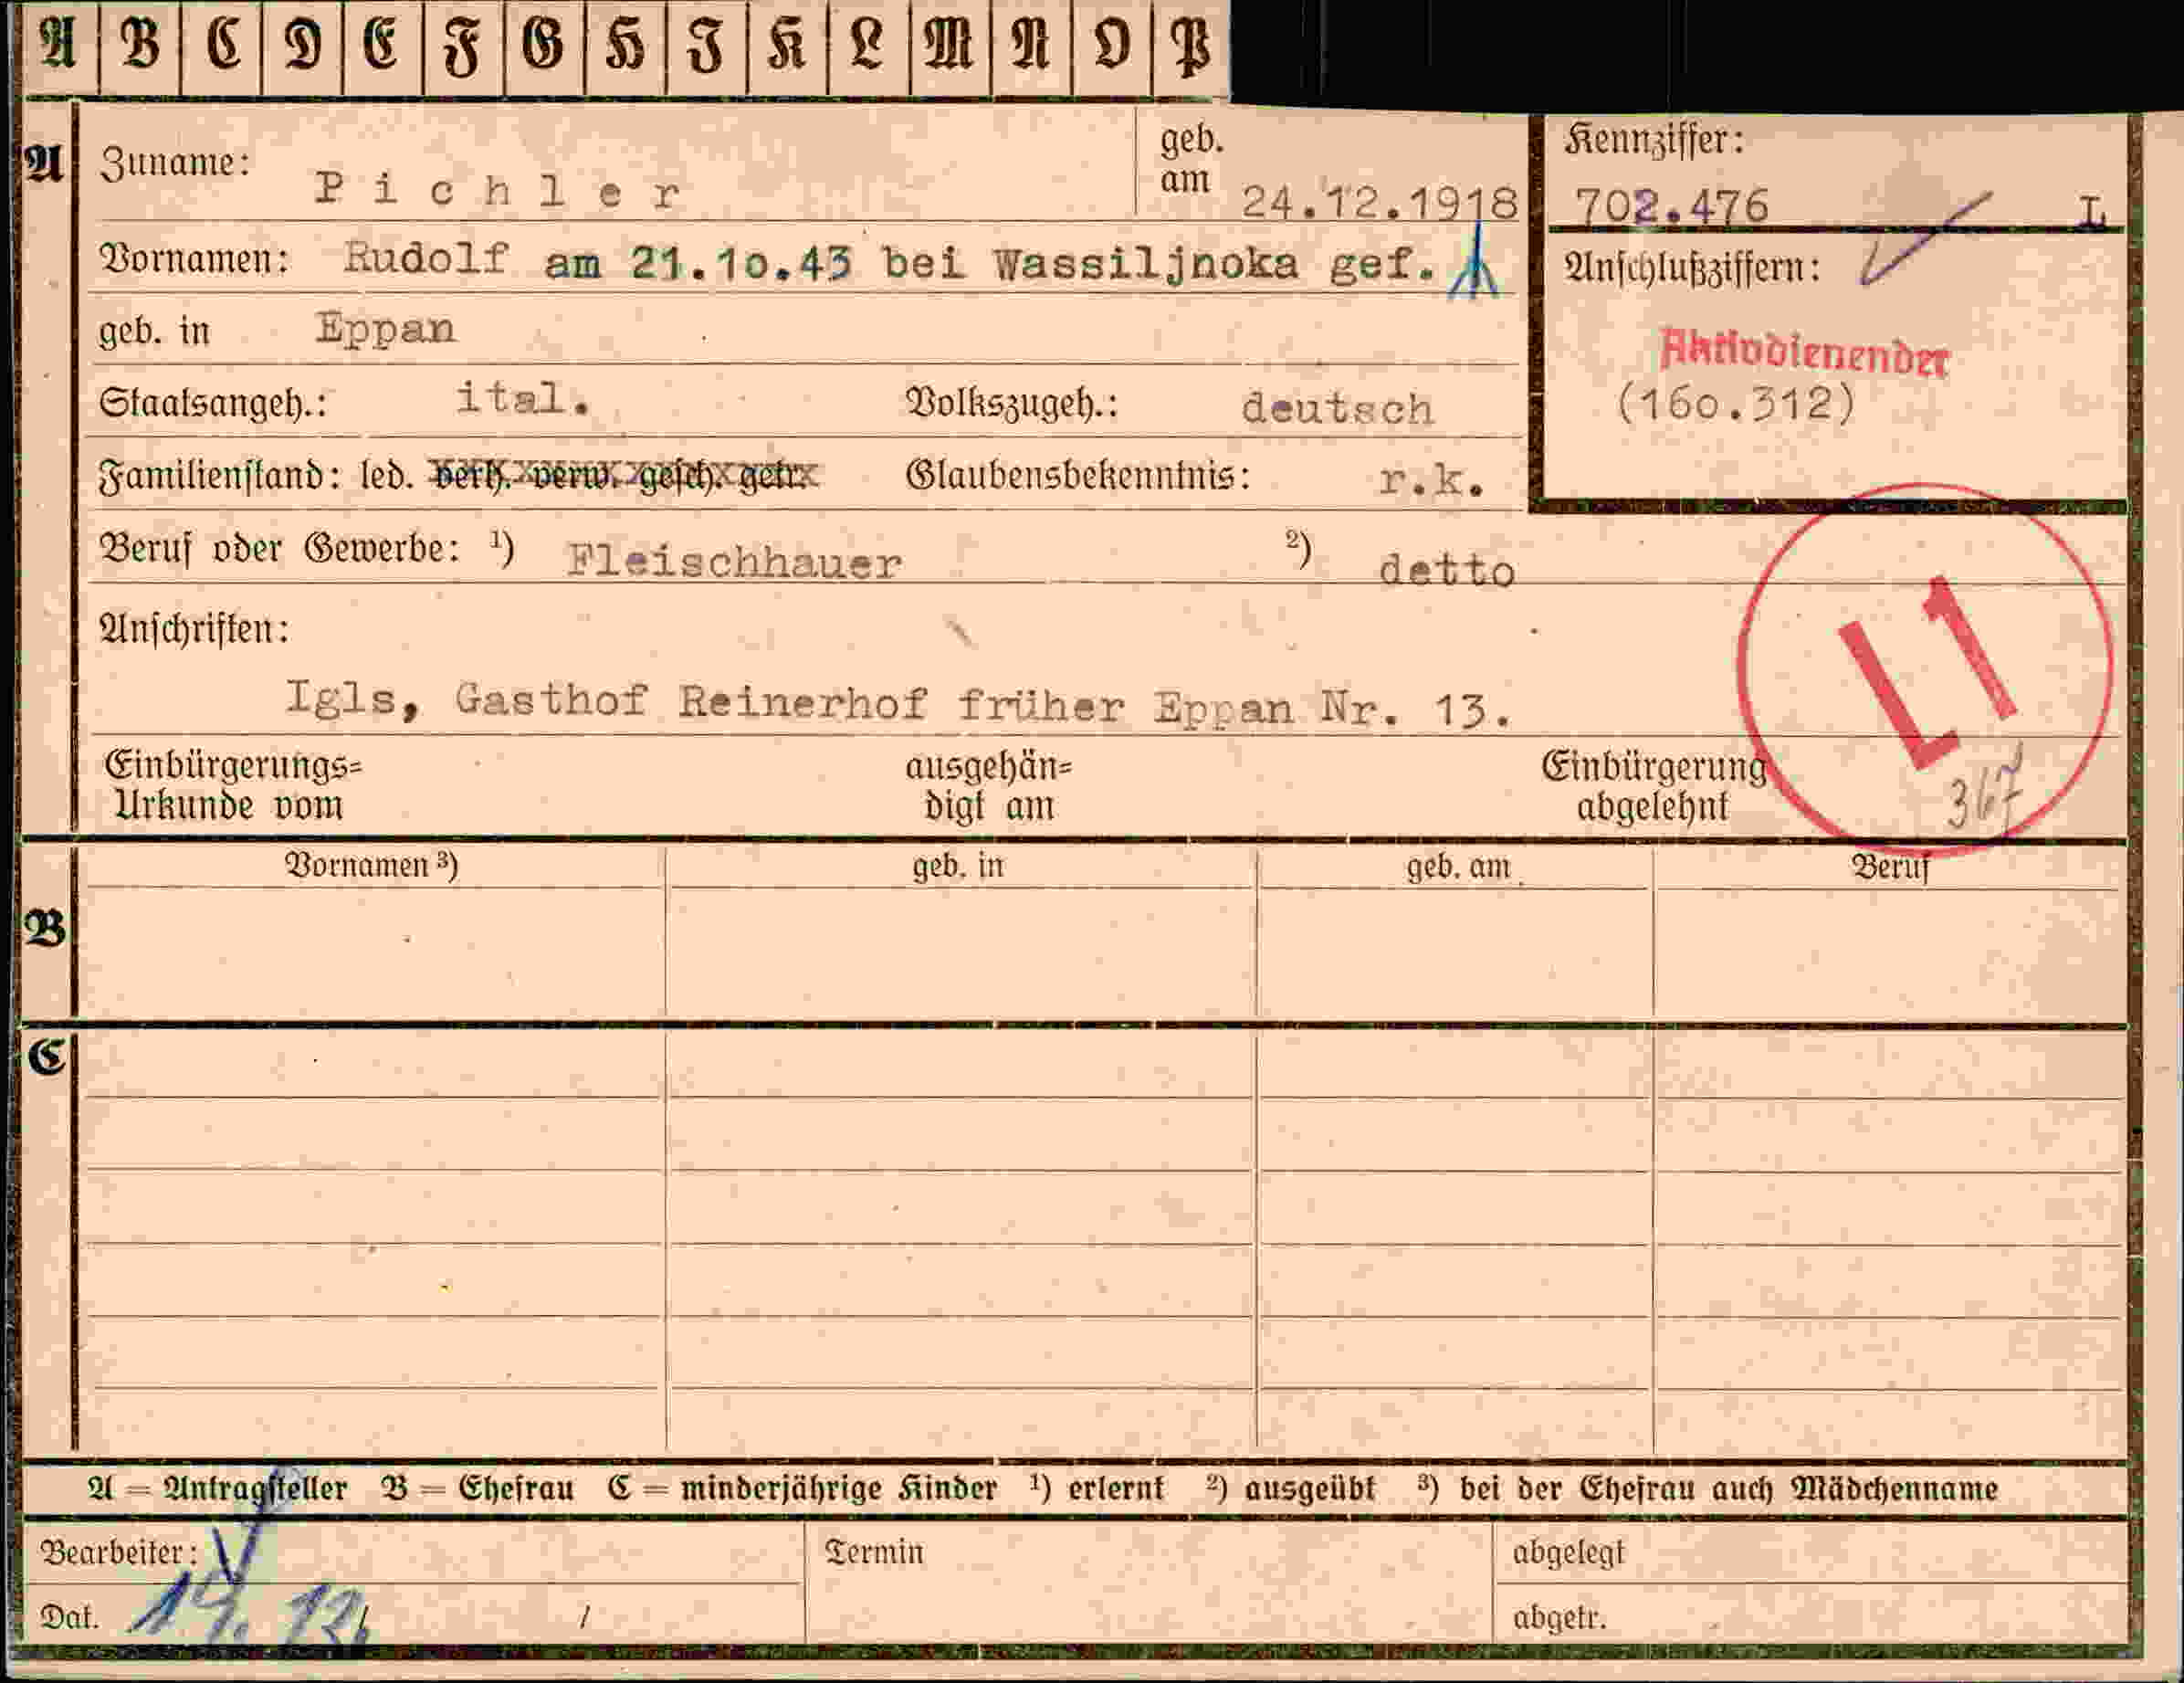 A B C D E F G H I K L M N O P
A Zuname: Pichler geb. am 24.12.1918 Kennziffer: 702.476 L
Vornamen: Rudolf am 21.10.43 bei Wassiljnoka gef. Anschlußziffern:
geb. in Eppan
Aktivdienender
Staatsangeh.: ital. Volkszugeh.: deutsch (160.312)
Familienstand: led. verh. verw. gesch. getr. Glaubensbekenntnis: r.k.
Beruf oder Gewerbe: ¹) Fleischhauer ²) detto
L1
Anschriften:
Igls, Gasthof Reinerhof früher Eppan Nr. 13.
Einbürgerungs= ausgehän= Einbürgerung
Urkunde vom digt am abgelehnt 367
Vornamen ³) geb. in geb. am Beruf
B
C
A = Antragsteller B = Ehefrau C = minderjährige Kinder ¹) erlernt ²) ausgeübt ³) bei der Ehefrau auch Mädchenname
Bearbeiter: Termin abgelegt
Dat. 14. 12. / abgetr.